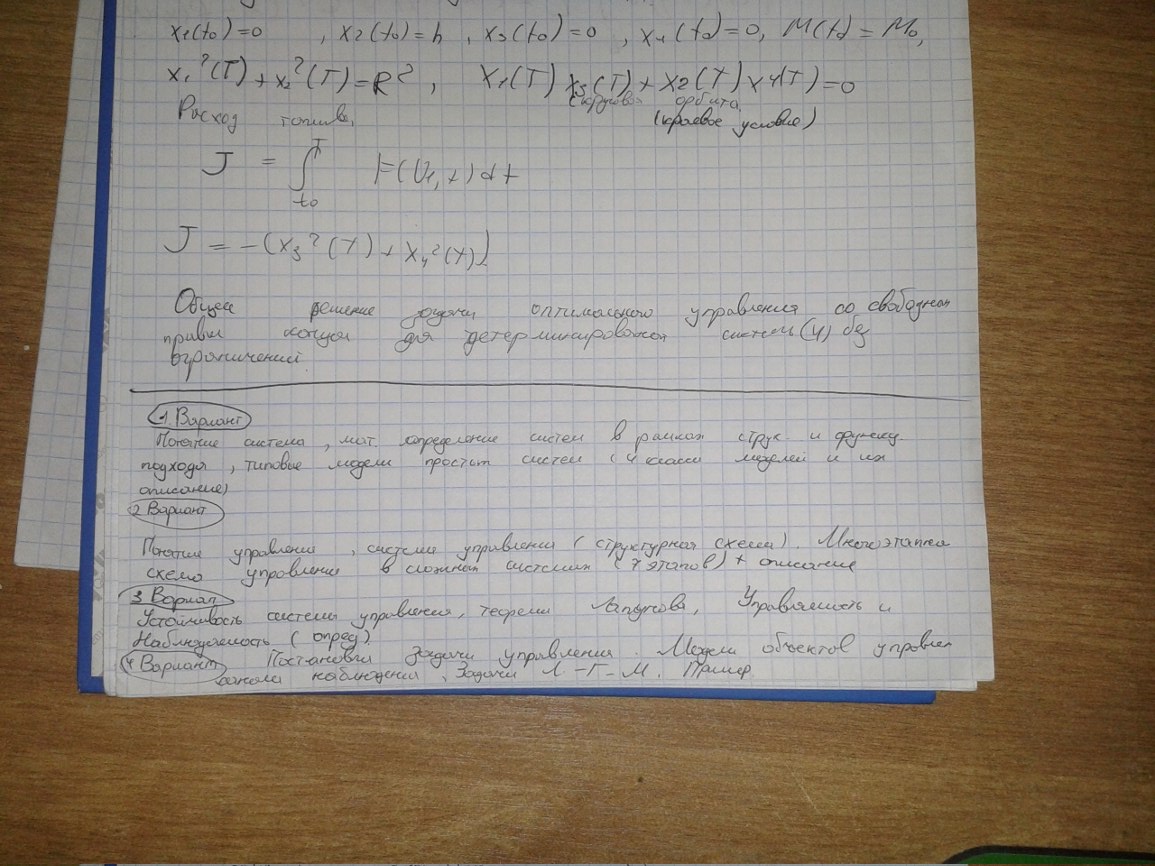 x₁(t₀)=0 , x₂(t₀)=h , x₃(t₀)=0 , x₄(t₀)=0, M(t₀)=M₀,
x₁²(T)+x₂²(T)=R² , x₁(T)x₃(T)+x₂(T)x₄(T)=0
(круговая орбита)
Расход топлива, (краевое условие)
J = ∫ F(U₁,t)dt
T
t₀
J = -(x₃²(T)+x₄²(T))
Общее решение задачи оптимального управления со свободным
правым концом для детерминированной систем (4) без
ограничений
1 Вариант
Понятие система, мат. определение систем в рамках струк. и функц.
подхода, типовые модели простых систем (4 класса моделей и их
описание)
2 Вариант
Понятие управления, система управления (структурная схема). Многоэтапная
схема управления в сложных системах (7 этапов) + описание
3 Вариант
Устойчивость системы управления, теоремы Ляпунова, Управляемость и
Наблюдаемость (опред)
4 Вариант Постановки задачи управления. Модели объектов управлен
канала наблюдения, Задачи Л-Г-М. Пример